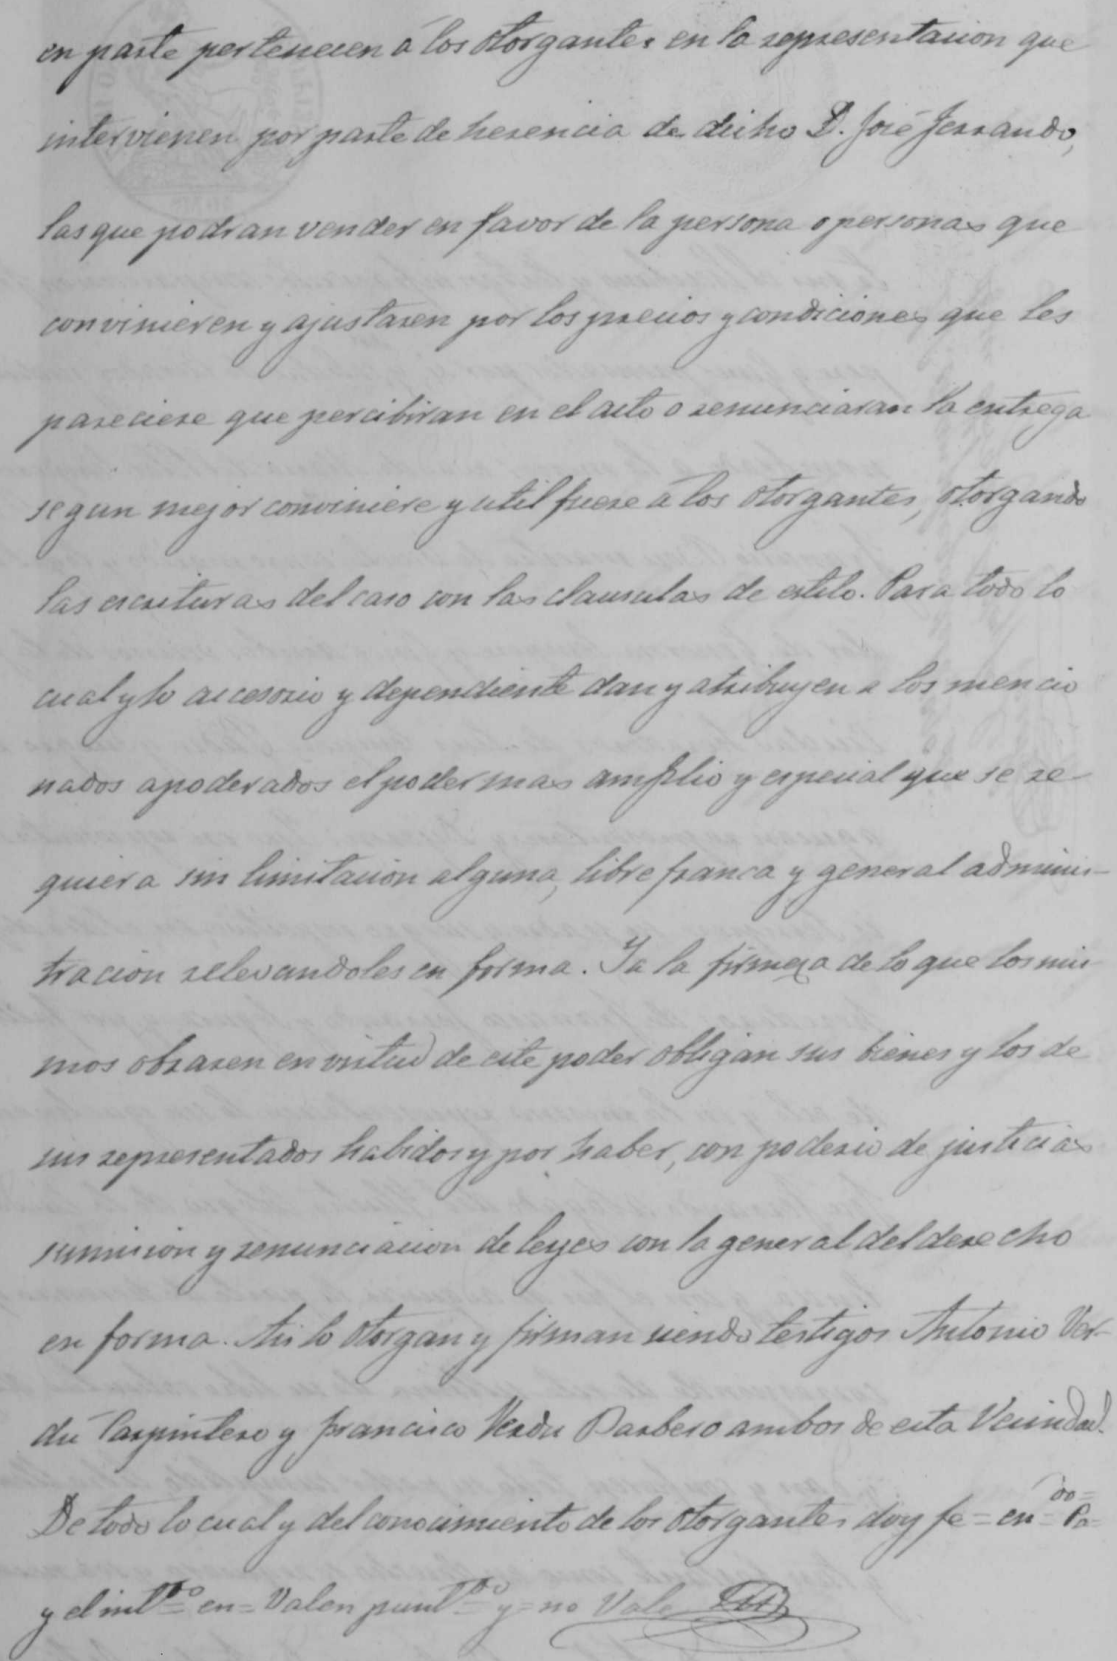 en parte pertenecen á los otorgantes en la representacion que
intervienen por parte de herencia de dicho D. José Ferrando,
las que podran vender en favor de la persona o personas que
convinieren y ajustasen por los precios y condiciones que les
pareciere que percibiran en el acto o renunciaran la entrega
segun mejor conviniere y util fuere á los otorgantes, otorgando
las escrituras del caso con las clausulas de estilo. Para todo lo
cual y lo accesorio y dependiente dan y atribuyen a los mencio
nados apoderados el poder mas amplio y especial que se re-
quiera sin limitacion alguna, libre franca y general adminis-
tracion relevandoles en forma. Y a la firmeza de lo que los mis-
mos obrasen en virtud de este poder obligan sus bienes y los de
sus representados habidos y por haber, con poderio de justicias
sumision y renunciacion de leyes con la general del derecho
en forma. Asi lo otorgan y firman siendo testigos Antonio Ver-
dú Carpintero y Francisco Verdu Barbero ambos de esta Vecindad.
De todo lo cual y del conocimiento de los otorgantes doy fe = en.do = Pa=
y el int.do = en = Valen punt.do y = no Vale